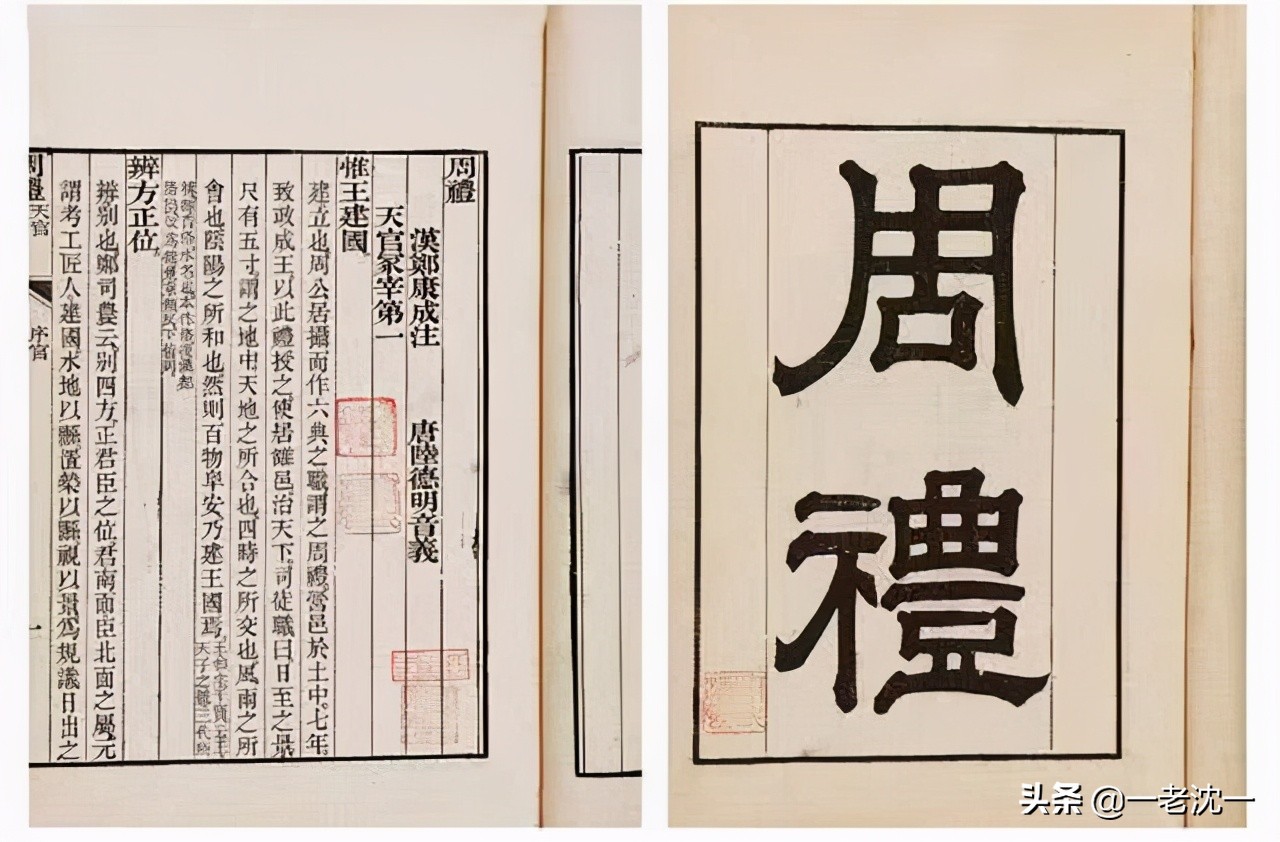 周禮
漢鄭康成注 唐陸德明音義
天官冢宰第一
惟王建國
建立也周公居攝而作六典之職謂之周禮營邑於土中七年
致政成王以此禮授之使居雒邑治天下司徒職曰日至之景
尺有五寸謂之地中天地之所合也四時之所交也風雨之所
會也陰陽之所和也然則百物阜安乃建王國焉
辨方正位
辨別也鄭司農云別四方正君臣之位君南面臣北面之屬元
謂考工匠人建國水地以縣置槷以縣視以景爲規識日出之
周禮 天官 序官 一
周禮
头条 @一老沈一